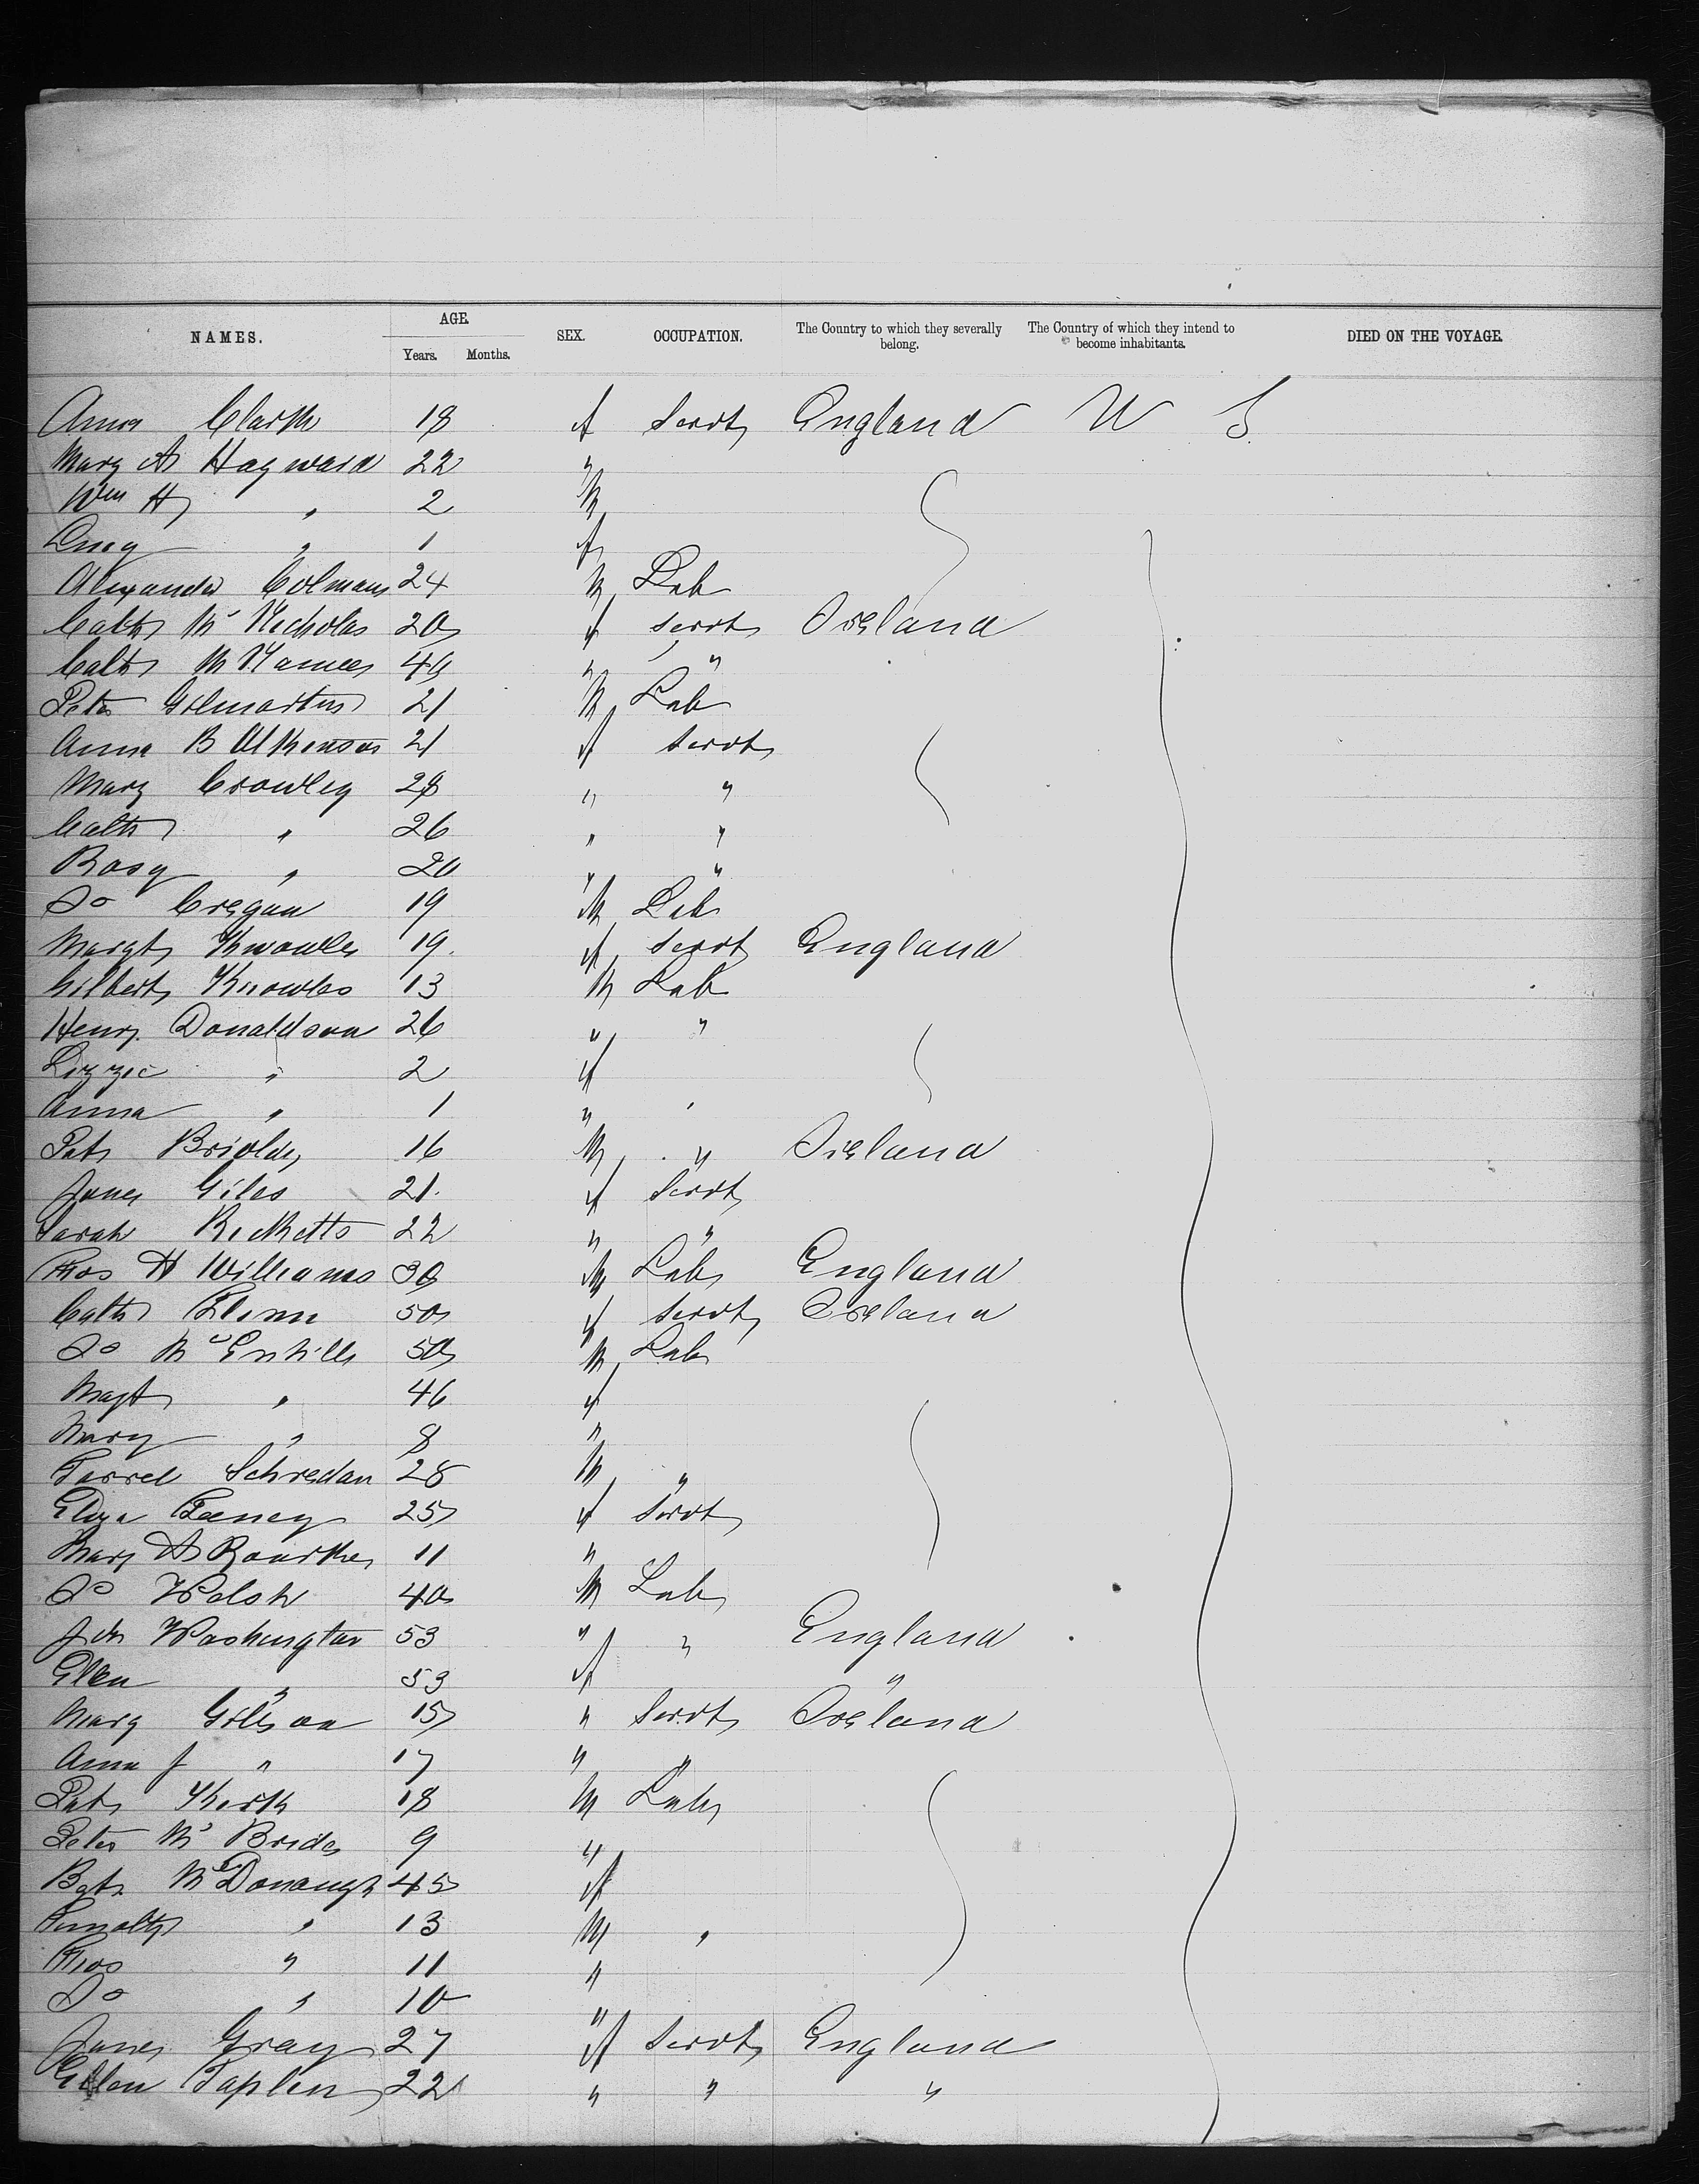 NAMES. AGE. SEX. OCCUPATION. The Country to which they severally belong. The Country of which they intend to become inhabitants. DIED ON THE VOYAGE.
Years. Months.
Anna Clark 18 f Servt England U S
Mary A Hayward 22 "
Wm H " 2 M
" 1 f
Alexander Colman 24 M Lab
Cath Mc Nicholas 20 f servt Ireland
Cath 48 " "
Peter Gilmartin 21 M Lab
Anna B Atkinson 21 f servt
Mary Crowley 28 " "
Cath " 26 " "
Rosy " 20 " "
Do Cregan 19 M Lab
Margt Knowles 19 f servt England
Gilbert Knowles 13 M Lab
Henry Donaldson 26 " "
Lizzie " 2 f
Anna " 1 "
Pat 16 M " Ireland
Jane Giles 21 f Servt
Sarah Ricketts 22 " "
Thos H Williams 30 M Lab England
Cath Flinn 50 f servt Ireland
Do 50 M Lab
Magt " 46 f
Mary " 8 "
Farrel Schredan 28 M "
Eliza Feeney 25 f Servt
Mary A Rourke 11 "
Do Welsh 40 M Lab
Jdn Washington 53 " " England
Ellen " 53 f "
Mary 15 " Servt Ireland
Anna J " 17 " "
Pat Kirk 18 M Lab
Peter Mc Bride 9 "
Bet Mc Donaugh 45 f
" 13 M "
Thos " 11 "
Do " 10 "
Jane Gray 27 f Servt England
Ellen Taplin 22 " " "